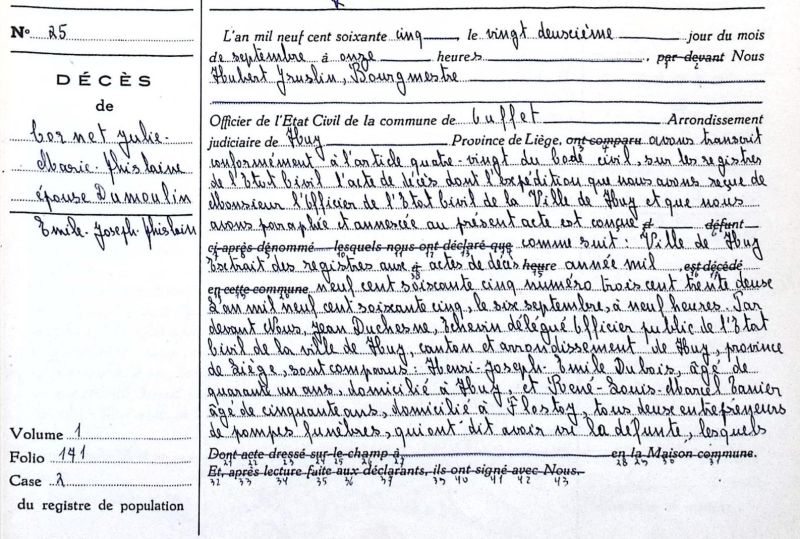 No 25
DÉCÈS
de
Cornet Julie-
Marie-Ghislaine
épouse Dumoulin
Emile-Joseph-Ghislain
Volume 1
Folio 141
Case 2
du registre de population
L'an mil neuf cent soixante cinq, le vingt deuxième jour du mois
de septembre à onze heures, par devant Nous
Hubert, Bourgmestre
Officier de l'Etat Civil de la commune de Cuffet Arrondissement
judiciaire de Huy Province de Liège, ont comparu avons transcrit
conformément à l'article quatre-vingt du Code civil, sur les registres
de l'Etat Civil l'acte de décès dont l'expédition que nous avons reçue de
Monsieur l'Officier de l'Etat civil de la Ville de Huy et que nous
avons paraphée et annexée au présent acte est conçue d défunt
ci-après dénommé lesquels nous ont déclaré que comme suit : Ville de Huy
Extrait des registres aux à actes de décès heure année mil, est décédé
en cette commune neuf cent soixante cinq numéro trois cent trente deux
L'an mil neuf cent soixante cinq, le six septembre, à neuf heures. Par
devant Nous, Jean Duchesne, Echevin délégué Officier public de l'Etat
Civil de la ville de Huy, canton et arrondissement de Huy, province
de Liège, sont comparus : Henri-Joseph-Emile Dubois, âgé de
quarante un ans, domicilié à Huy, et René-Louis-Marcel Tanier
âgé de cinquante ans, domicilié à Flostoy, tous deux entrepreneurs
de pompes funèbres, qui ont dit avoir vu la défunte, lesquels
Dont acte dressé sur-le-champ à en la Maison commune.
21 22 23 24 25 26 27 28 29 30 31
Et, après lecture faite aux déclarants, ils ont signé avec Nous.
32 33 34 35 36 37 39 40 41 42 43